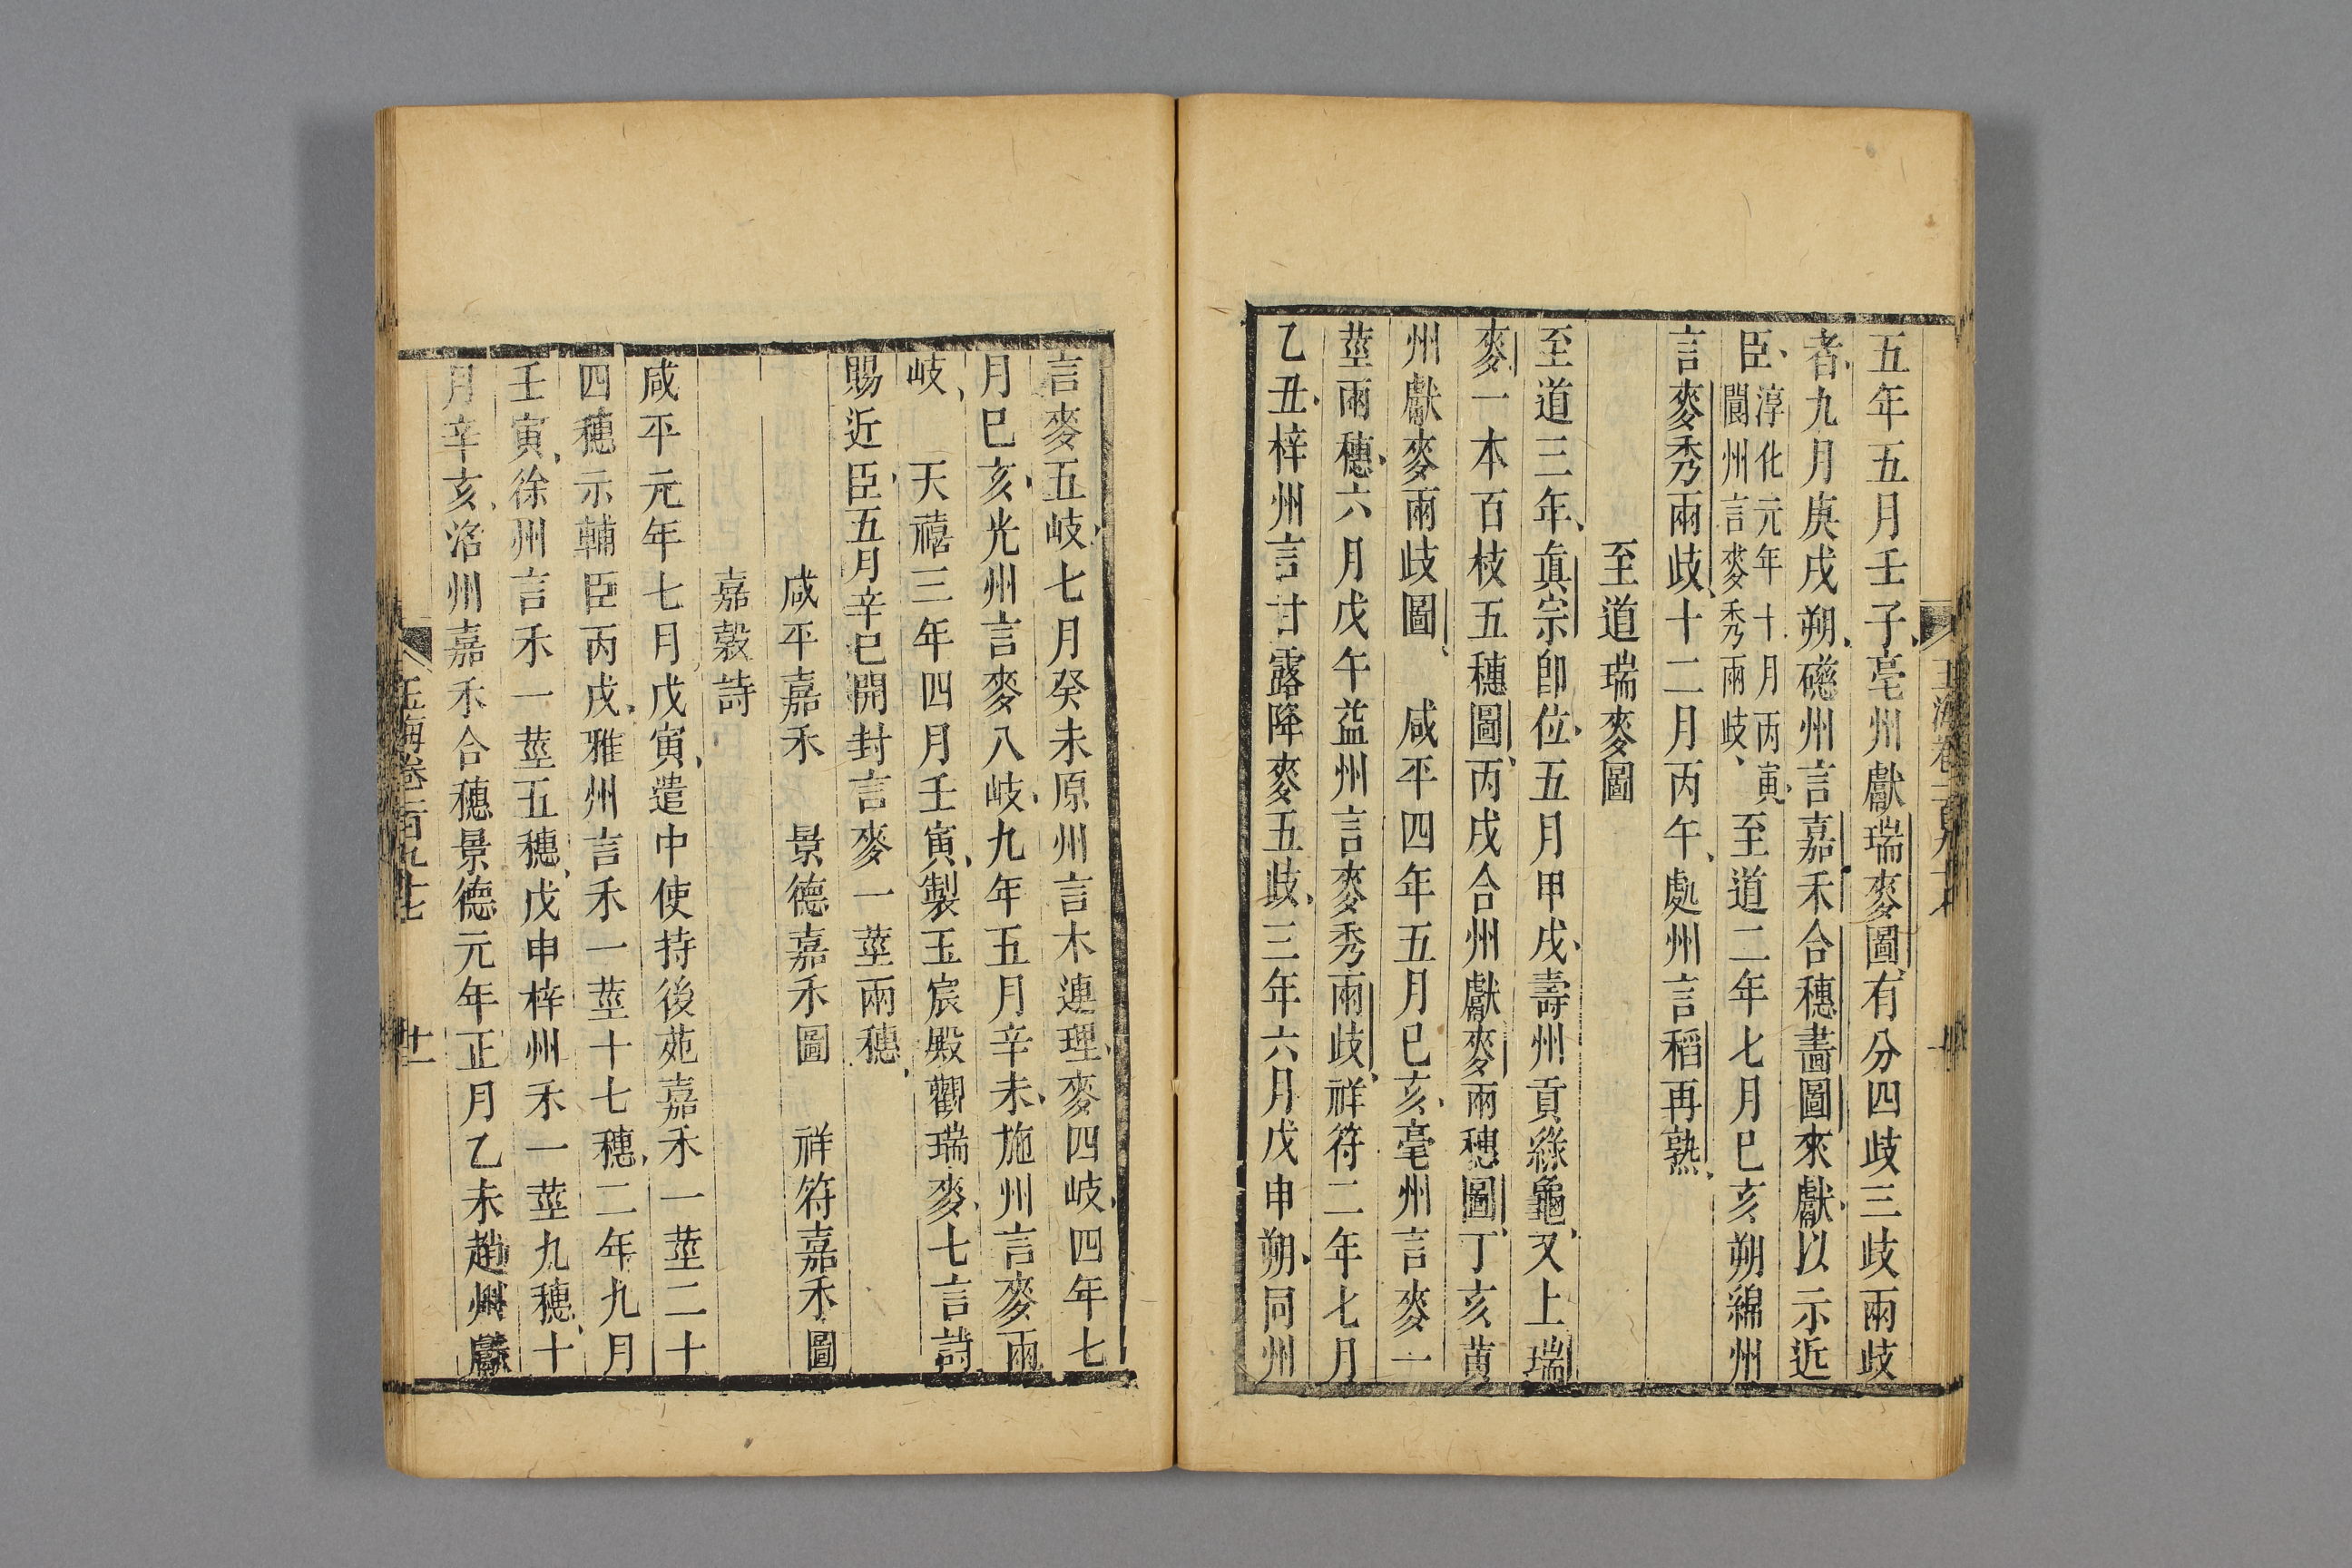 五年五月壬子亳州獻瑞麥圖有分四歧三歧兩歧
者九月庚戌朔磁州言嘉禾合穗畵圖來獻以示近
臣淳化元年十月丙寅
閬州言麥秀兩歧至道二年七月巳亥朔綿州
言麥秀兩歧十二月丙午處州言稻再熟
至道瑞麥圖
至道三年眞宗卽位五月甲戌壽州貢綠龜又上瑞
麥一本百枝五穗圖丙戌合州獻麥兩穗圖丁亥黄
州獻麥兩歧圖 咸平四年五月巳亥亳州言麥一
莖兩穗六月戊午益州言麥秀兩歧祥符二年七月
乙丑梓州言甘露降麥五歧三年六月戊申朔同州
言麥五岐七月癸未原州言木連理麥四岐四年七
月巳亥光州言麥八岐九年五月辛未施州言麥兩
岐 天禧三年四月壬寅製玉宸殿觀瑞麥七言詩
賜近臣五月辛巳開封言麥一莖兩穗
咸平嘉禾 景德嘉禾圖 祥符嘉禾圖
嘉穀詩
咸平元年七月戊寅遣中使持後苑嘉禾一莖二十
四穗示輔臣丙戌雅州言禾一莖十七穗二年九月
壬寅徐州言禾一莖五穗戊申梓州禾一莖九穗十
月辛亥洺州嘉禾合穗景德元年正月乙未趙州獻
玉海卷一百九十七
廿一